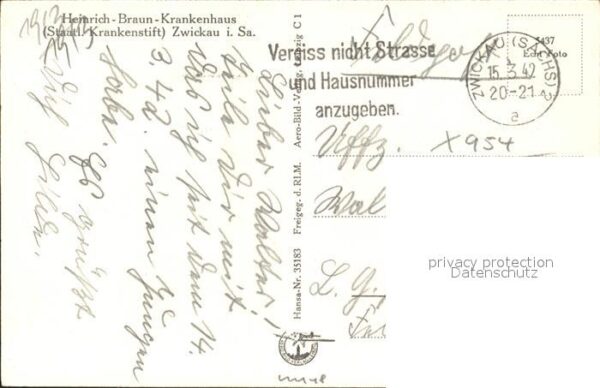 Heinrich-Braun-Krankenhaus
(Staatl. Krankenstift) Zwickau i. Sa.
Lieber Walter!
Teile Dir mit
das ich seit dem 14.
3. 42. einen Jungen
habe. Es grüßt
Dich
Hansa-Nr. 35183 Freigeg. d. RLM. Aero-Bild-Verlag, Leipzig C 1
Feldpost
Vergiss nicht Strasse
und Hausnummer
anzugeben.
5437
Echt Foto
ZWICKAU (SACHS) 2
15.3.42
20-21
a
Uffz.
X954
Wal
L. G.
privacy protection
Datenschutz